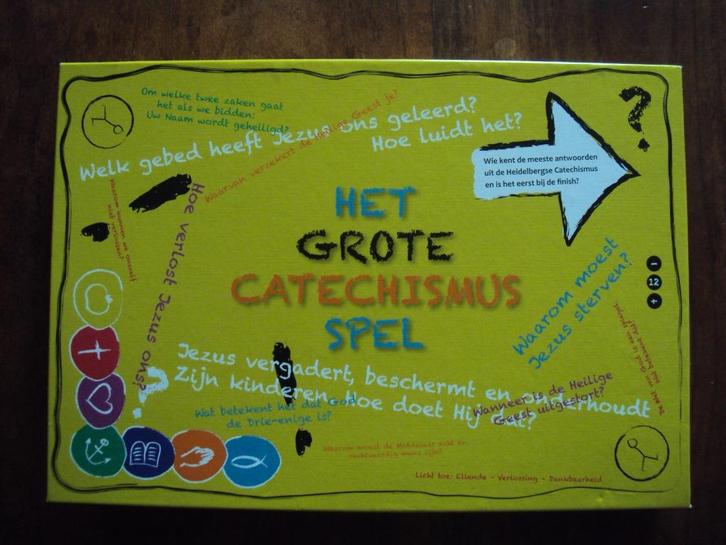 Om welke twee zaken gaat
het als we bidden:
Uw Naam wordt geheiligd?
Welk gebed heeft Jezus ons geleerd?
Hoe luidt het?
Waarvan verzekert de Heilige Geest je?
Wie kent de meeste antwoorden
uit de Heidelbergse Catechismus
en is het eerst bij de finish?
Hoe verlost Jezus ons?
HET
GROTE
CATECHISMUS
SPEL
Waarom moest
Jezus sterven?
12
Jezus vergadert, beschermt en onderhoudt
Zijn kinderen. Hoe doet Hij dat?
Wanneer is de Heilige
Geest uitgestort?
Wat betekent het dat God
de Drie-enige is?
Waarom moest de Middelaar echt en
rechtvaardig mens zijn?
Licht toe: Ellende - Verlossing - Dankbaarheid